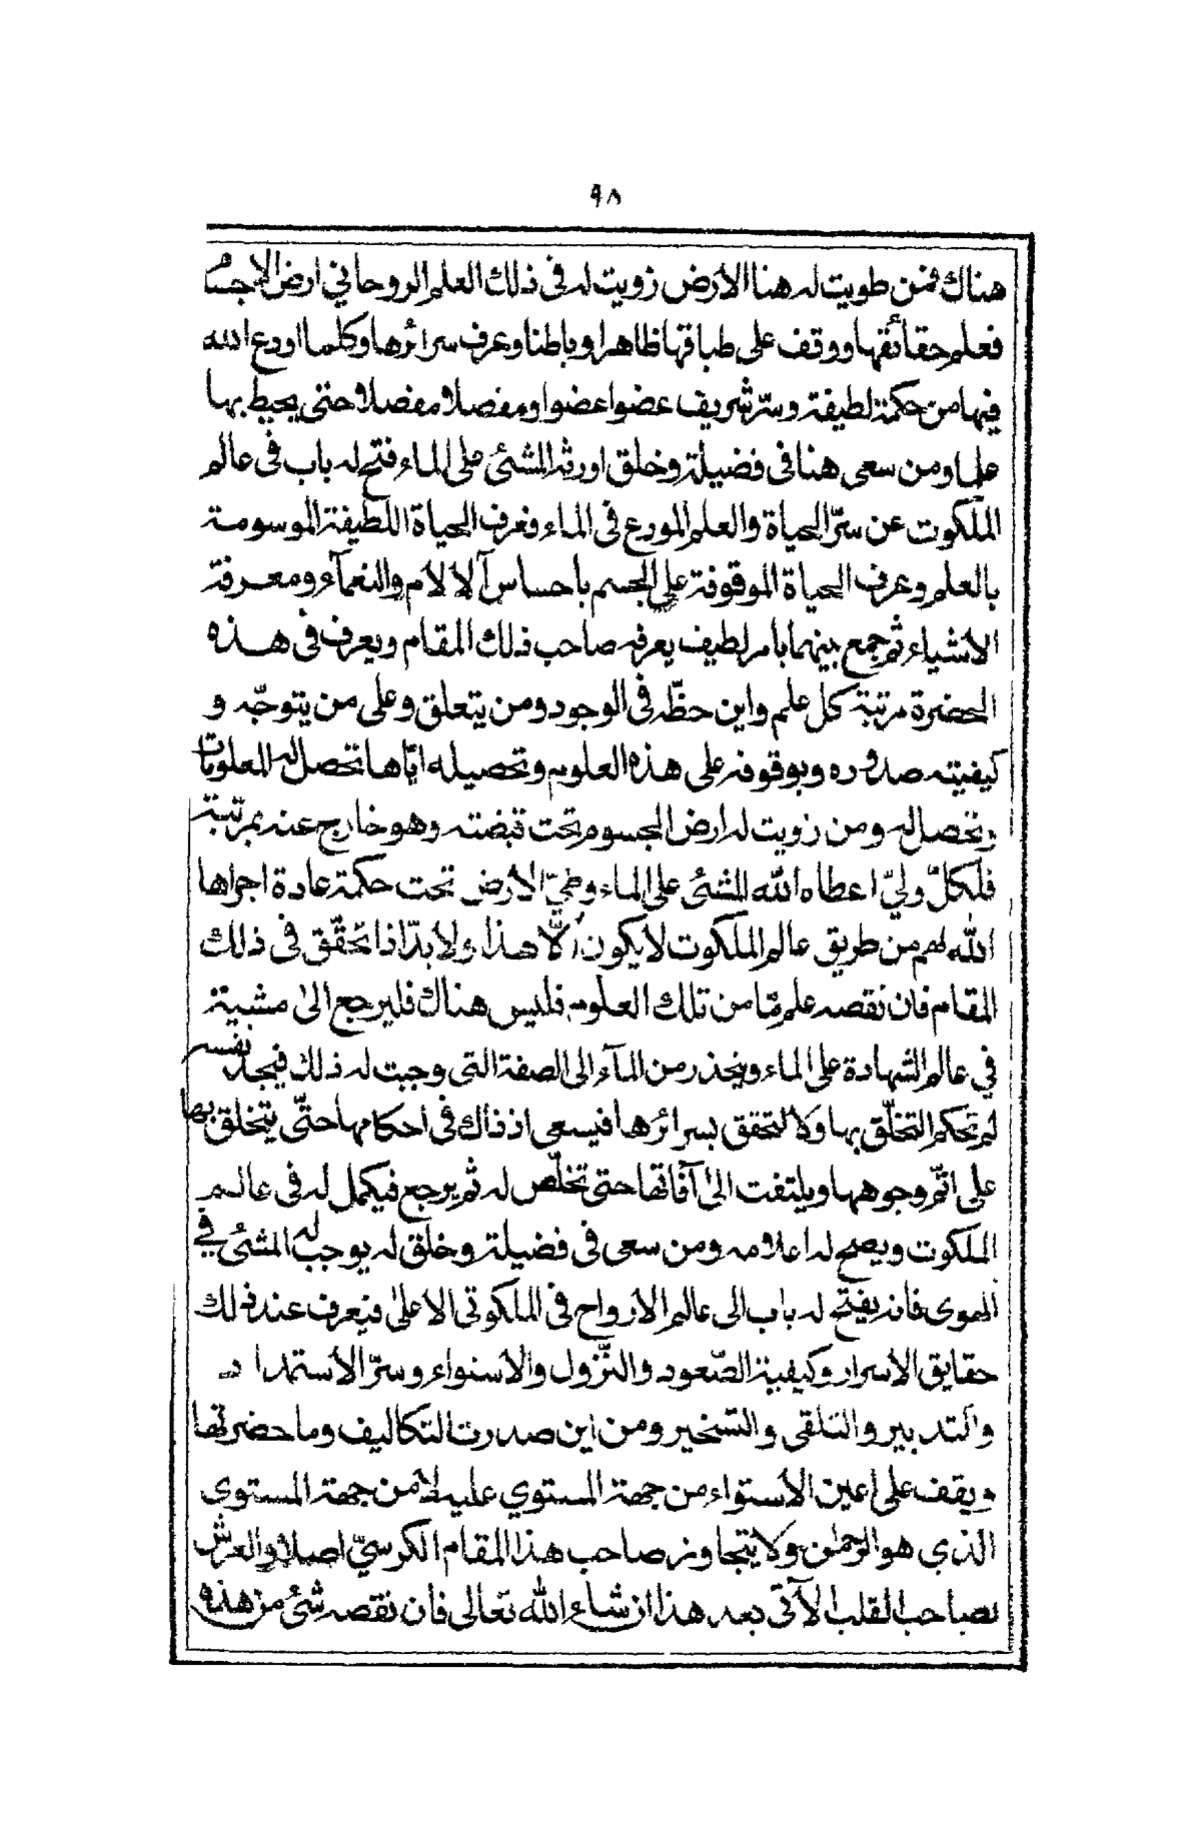 ٩٨
هناك فمن طويت له هنا الأرض زويت له فى ذلك العلم الروحاني ارض الاجسام
فعلم حقائقها ووقف على طباقها ظاهرا وباطنا وعرف سرائرها وكلما اودع الله
فيها من حكمة لطيفة وسرّ شريف عضوا عضوا ومفصلا مفصلا حتى يحيط بها
علما ومن سعى هنا فى فضيلة وخلق اورثه المشئ على الماء فتح له باب فى عالم
الملكوت عن سرّ الحياة والعلم المودع فى الماء فعرف الحياة اللطيفة الموسومة
بالعلم وعرف الحياة الموقوفة على الجسم باحساس آلالام والنعمآء ومعرفة
الأشياء ثم جمع بينهما بامر لطيف يعرفه صاحب ذلك المقام ويعرف فى هذه
الحضرة مرتبة كل علم واين حظّه فى الوجود ومن يتعلق وعلى من يتوجّه و
كيفيته صدوره وبوقوفه على هذه العلوم وتحصيله ايّاها تحصل له المعلومات
وتحصل له ومن زويت له ارض الجسوم تحت قبضته وهو خارج عنه بمرتبة
فلكلّ وليّ اعطاه الله المشئ على الماء وطيّ الأرض تحت حكمة عادة اجراها
الله لهم من طريق عالم الملكوت لا يكون الّا هذا ولابدّ اذا تحقّق فى ذلك
المقام فان نقصه علم مّا من تلك العلوم فليس هناك فليرجع الى مشيته
في عالم الشهادة على الماء وينحذر من المآء الى الصفة التى وجبت له ذلك فيجد نفسه
لم تحكم التخلّق بها ولا التحقق بسرائرها فيسعى اذ ذاك فى احكامها حتّى يتخلق بها
على اتمّ وجوهها ويلتفت الى آفاتها حتى تخلّص له ثم يرجع فيكمل له فى عالم
الملكوت ويصح له اعلامه ومن سعى فى فضيلة وخلق له يوجب له المشئ في
الهوى فانه يفتح له باب الى عالم الارواح فى الملكوتى الاعلى فيعرف عند ذلك
حقايق الأسرار وكيفية الصّعود والنّزول والأستواء وسرّ الأستمداد
والتدبير والتلقى والتسخير ومن اين صدرت التكاليف وما حضرتها
ويقف على اعين الأستواء من جهة المستوي عليه لا من جهة المستوى
الذي هو الرحمن ولا يتجاوز صاحب هذا المقام الكرسيّ اصلا والعرش
لصاحب القلب الآتى بعد هذا ان شاء الله تعالى فان نقصه شئ من هذه